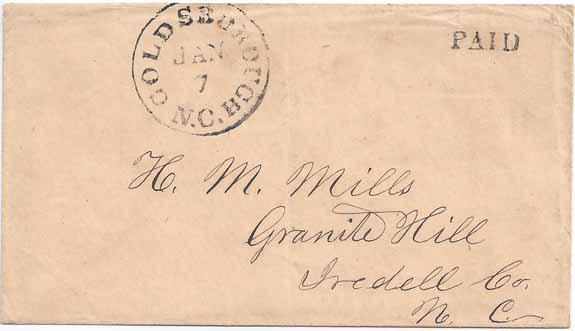 GOLDSBOROUGH
JAN
7
N.C.
PAID
H. M. Mills
Granite Hill
Iredell Co.
N. C.